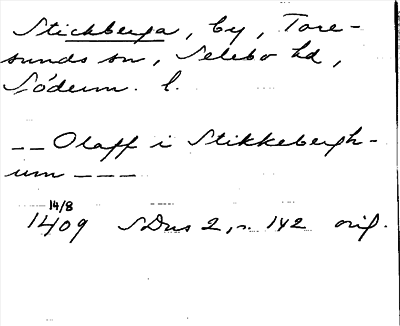 Stickberga, by, Tore-
sunds sn, Selebo hd,
Söderm. l.
-- Olaff i Stikkebergh-
um ---
14/8
1409 SDns 2, s. 142 orig.